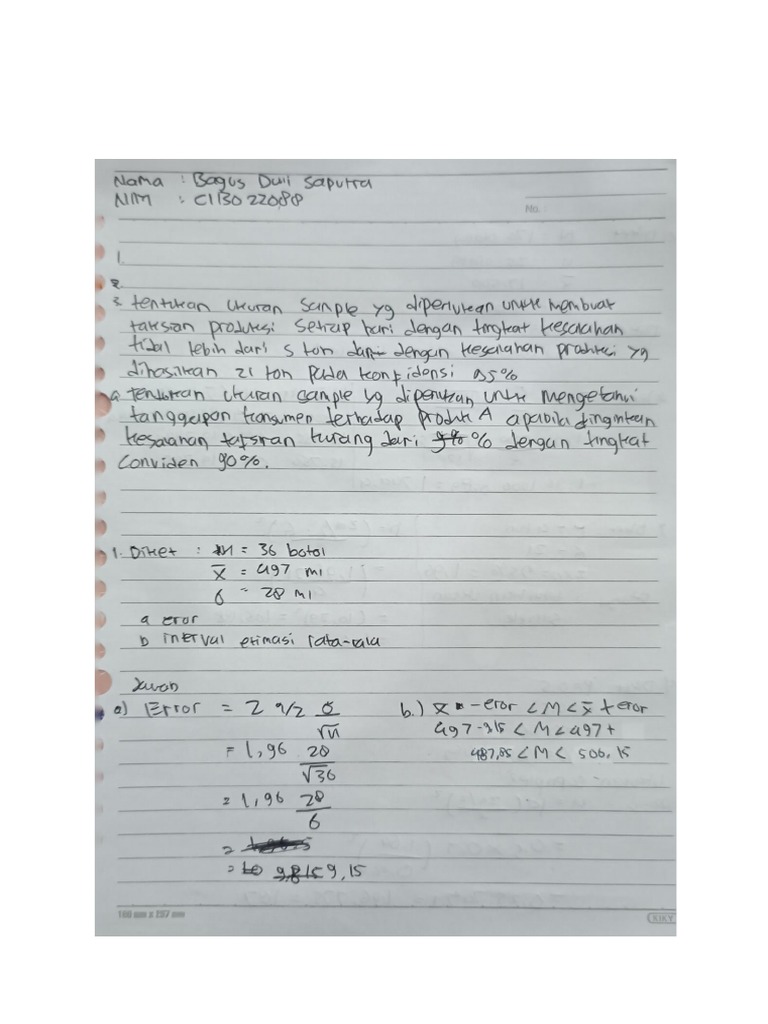 Nama : Bagus Dwi Saputra
NIM : C1B022088
No.
1.
2.
3. tentukan ukuran sample yg diperlukan untuk membuat
taksiran produksi setiap hari dengan tingkat kesalahan
tidal lebih dari 5 ton dan dengan kesalahan produksi yg
dihasilkan 21 ton pada konfidensi 95%
a. tentukan ukuran sample yg diperlukan untuk mengetahui
tanggapan konsumen terhadap produk A apabila diinginkan
kesalahan tafsiran kurang dari % dengan tingkat
conviden 90%.
1. Diket : n = 36 botol
x̄ = 497 ml
σ = 28 ml
a eror
b interval estimasi rata-rata
Jawab
a) Error = Z α/2 σ/√n
= 1,96 28/√36
= 1,96 28/6
= 9,15
b.) x̄ - eror < M < x̄ + eror
497-9,15 < M < 497+
487,85 < M < 506,15
160 mm x 207 mm
KIKY